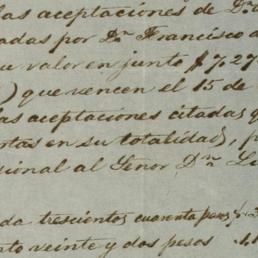 las aceptaciones de Dn
adas por Dn Francisco
su valor en junto $7,27
) que vencen el 15 de
las aceptaciones citadas
tas en su totalidad, p
sional al Señor Dn Li
da trescientos cuarenta pesos
nto veinte y dos pesos